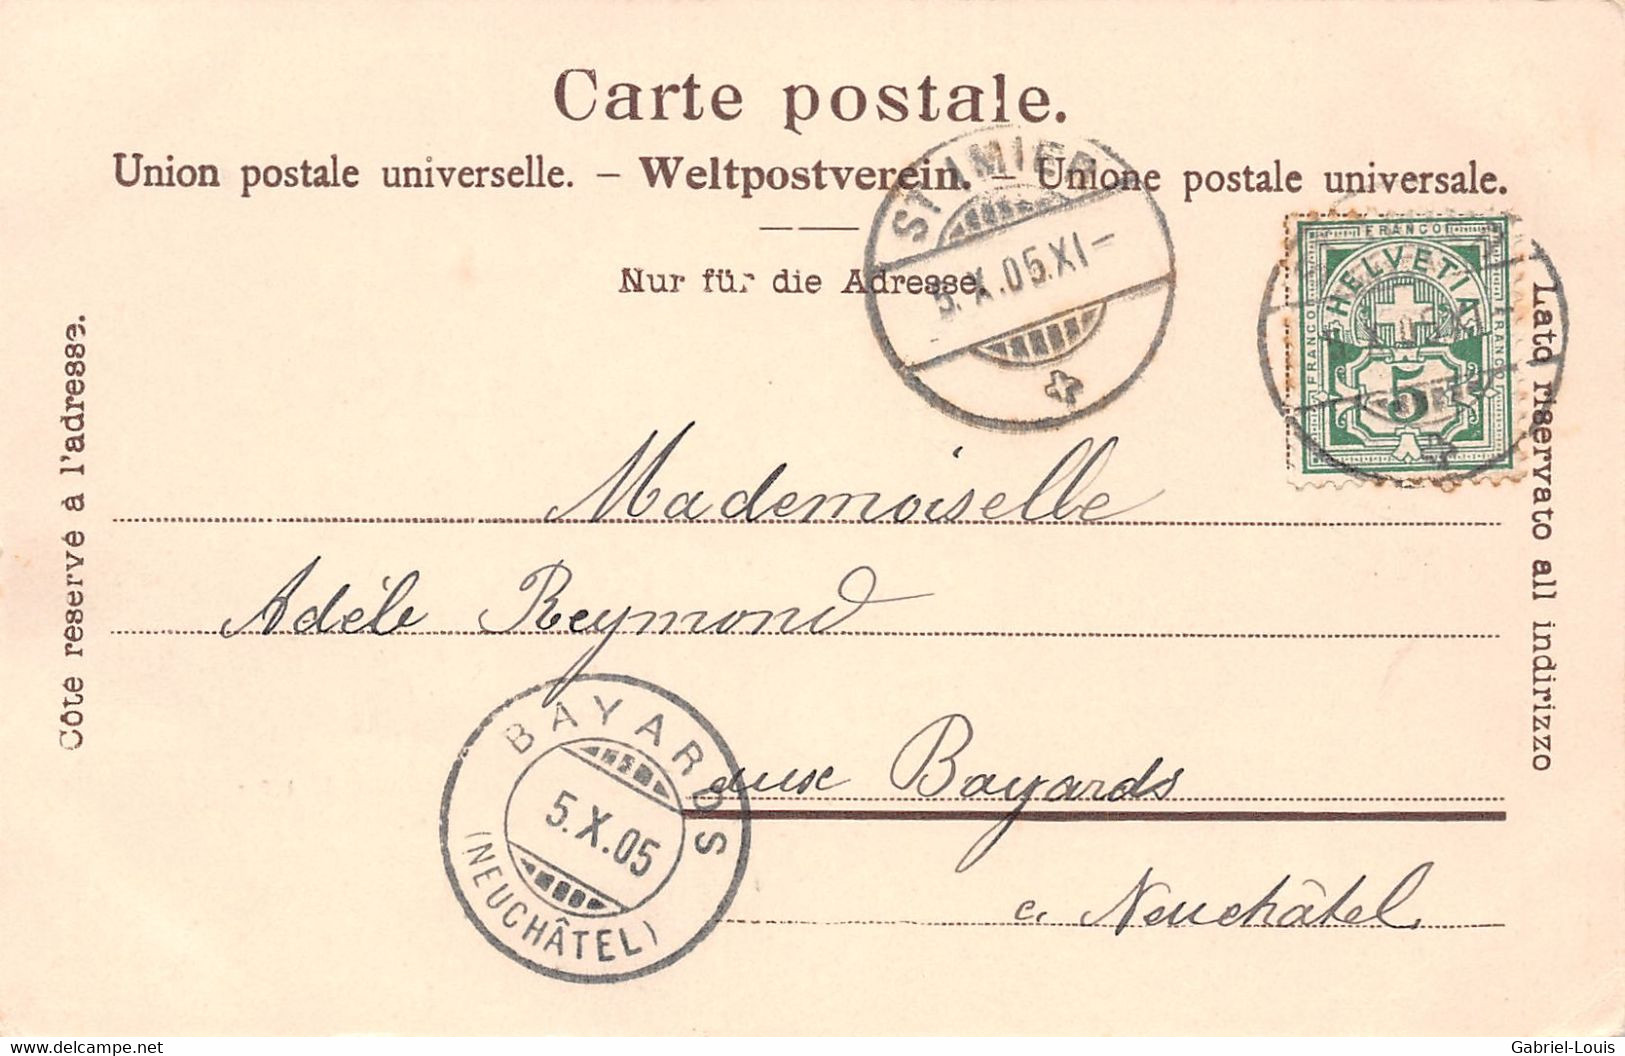 Carte postale.
Union postale universelle. – Weltpostverein. – Unione postale universale.
Nur für die Adresse.
ST IMIER
5.X.05.XI–
FRANCO
FRANCO
FRANCO
HELVETIA
5
Côte reservé à l'adresse.
Lato riservato all indirizzo
Mademoiselle
Adèle Reymond
aux Bayards
c. Neuchâtel
BAYARDS
5.X.05
(NEUCHÂTEL)
delcampe.net
Gabriel-Louis